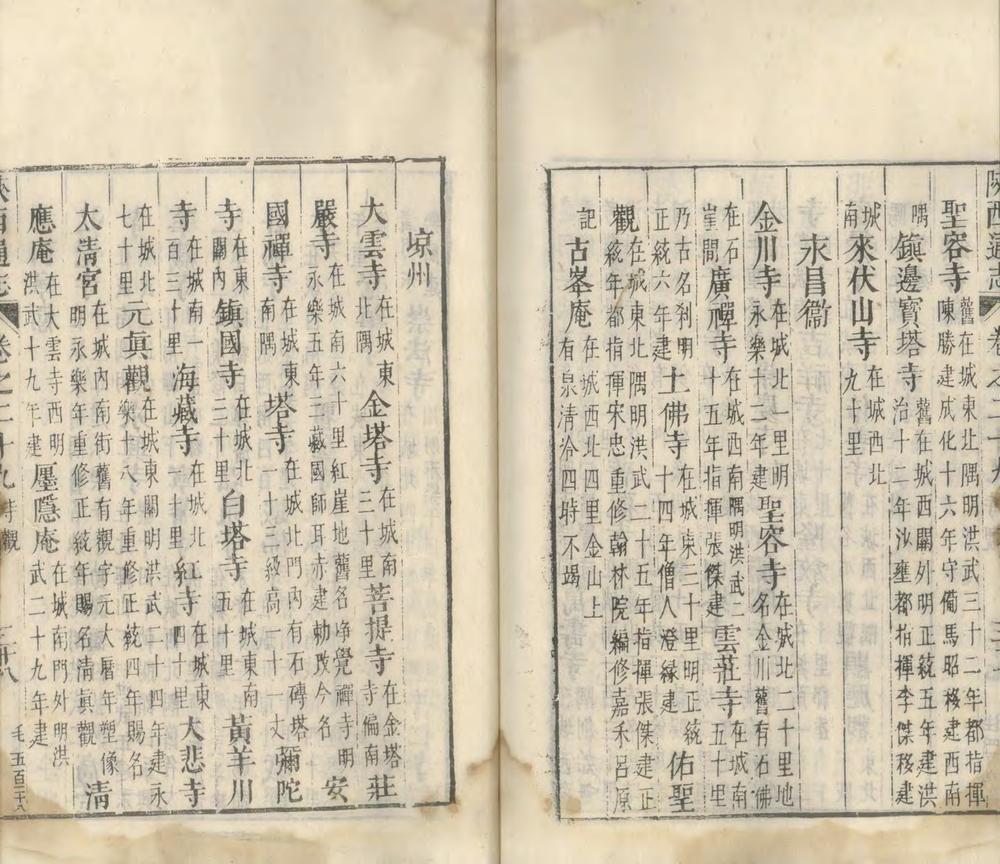 陝西通志 卷之二十九
聖容寺 舊在城東北隅明洪武三十二年都指揮陳勝建成化十六年守備馬昭移建西南
隅 鎮邊寶塔寺 舊在城西關外明正統五年建洪治十二年沙壅都指揮李傑移建
城南 來伏山寺 在城西北九十里
永昌衛
金川寺 在城北一里明永樂十二年建 聖容寺 在城北二十里地名金川舊有石佛
在石崖間 廣禪寺 在城西南隅明洪武二十五年指揮張傑建 雲莊寺 在城南五十里
乃古名刹明正統六年建 土佛寺 在城東三十里明正統十四年僧人澄緣建 佑聖
觀 在城東北隅明洪武二十五年指揮張傑建正統年都指揮宋忠重修翰林院編修嘉禾呂原
記 古峯庵 在城西北四里金山上有泉清冷四時不竭
涼州
大雲寺 在城東北隅 金塔寺 在城南三十里 菩提寺 在金塔寺偏南 莊
嚴寺 在城南六十里紅崖地舊名净覺禪寺明永樂五年三藏國師耳赤建勅改今名 安
國禪寺 在城東南隅 塔寺 在城北門内有石磚塔一十三級高一十一丈 彌陀
寺 在東關内 鎮國寺 在城北三十里 白塔寺 在城東南五十里 黃羊川
寺 在城南一百三十里 海藏寺 在城北一十里 紅寺 在城東四十里 大悲寺
在城北七十里 元眞觀 在城東關明洪武二十四年建永樂十八年重修正統四年賜名
太清宮 在城内南街舊有觀宇元大曆年塑像明永樂年重修正統年賜名清眞觀 清
應庵 在大雲寺西明洪武十九年建 墨隱庵 在城南門外明洪武二十九年建
陝西通志 卷之二十九 寺觀 三十八
毛五百二十八